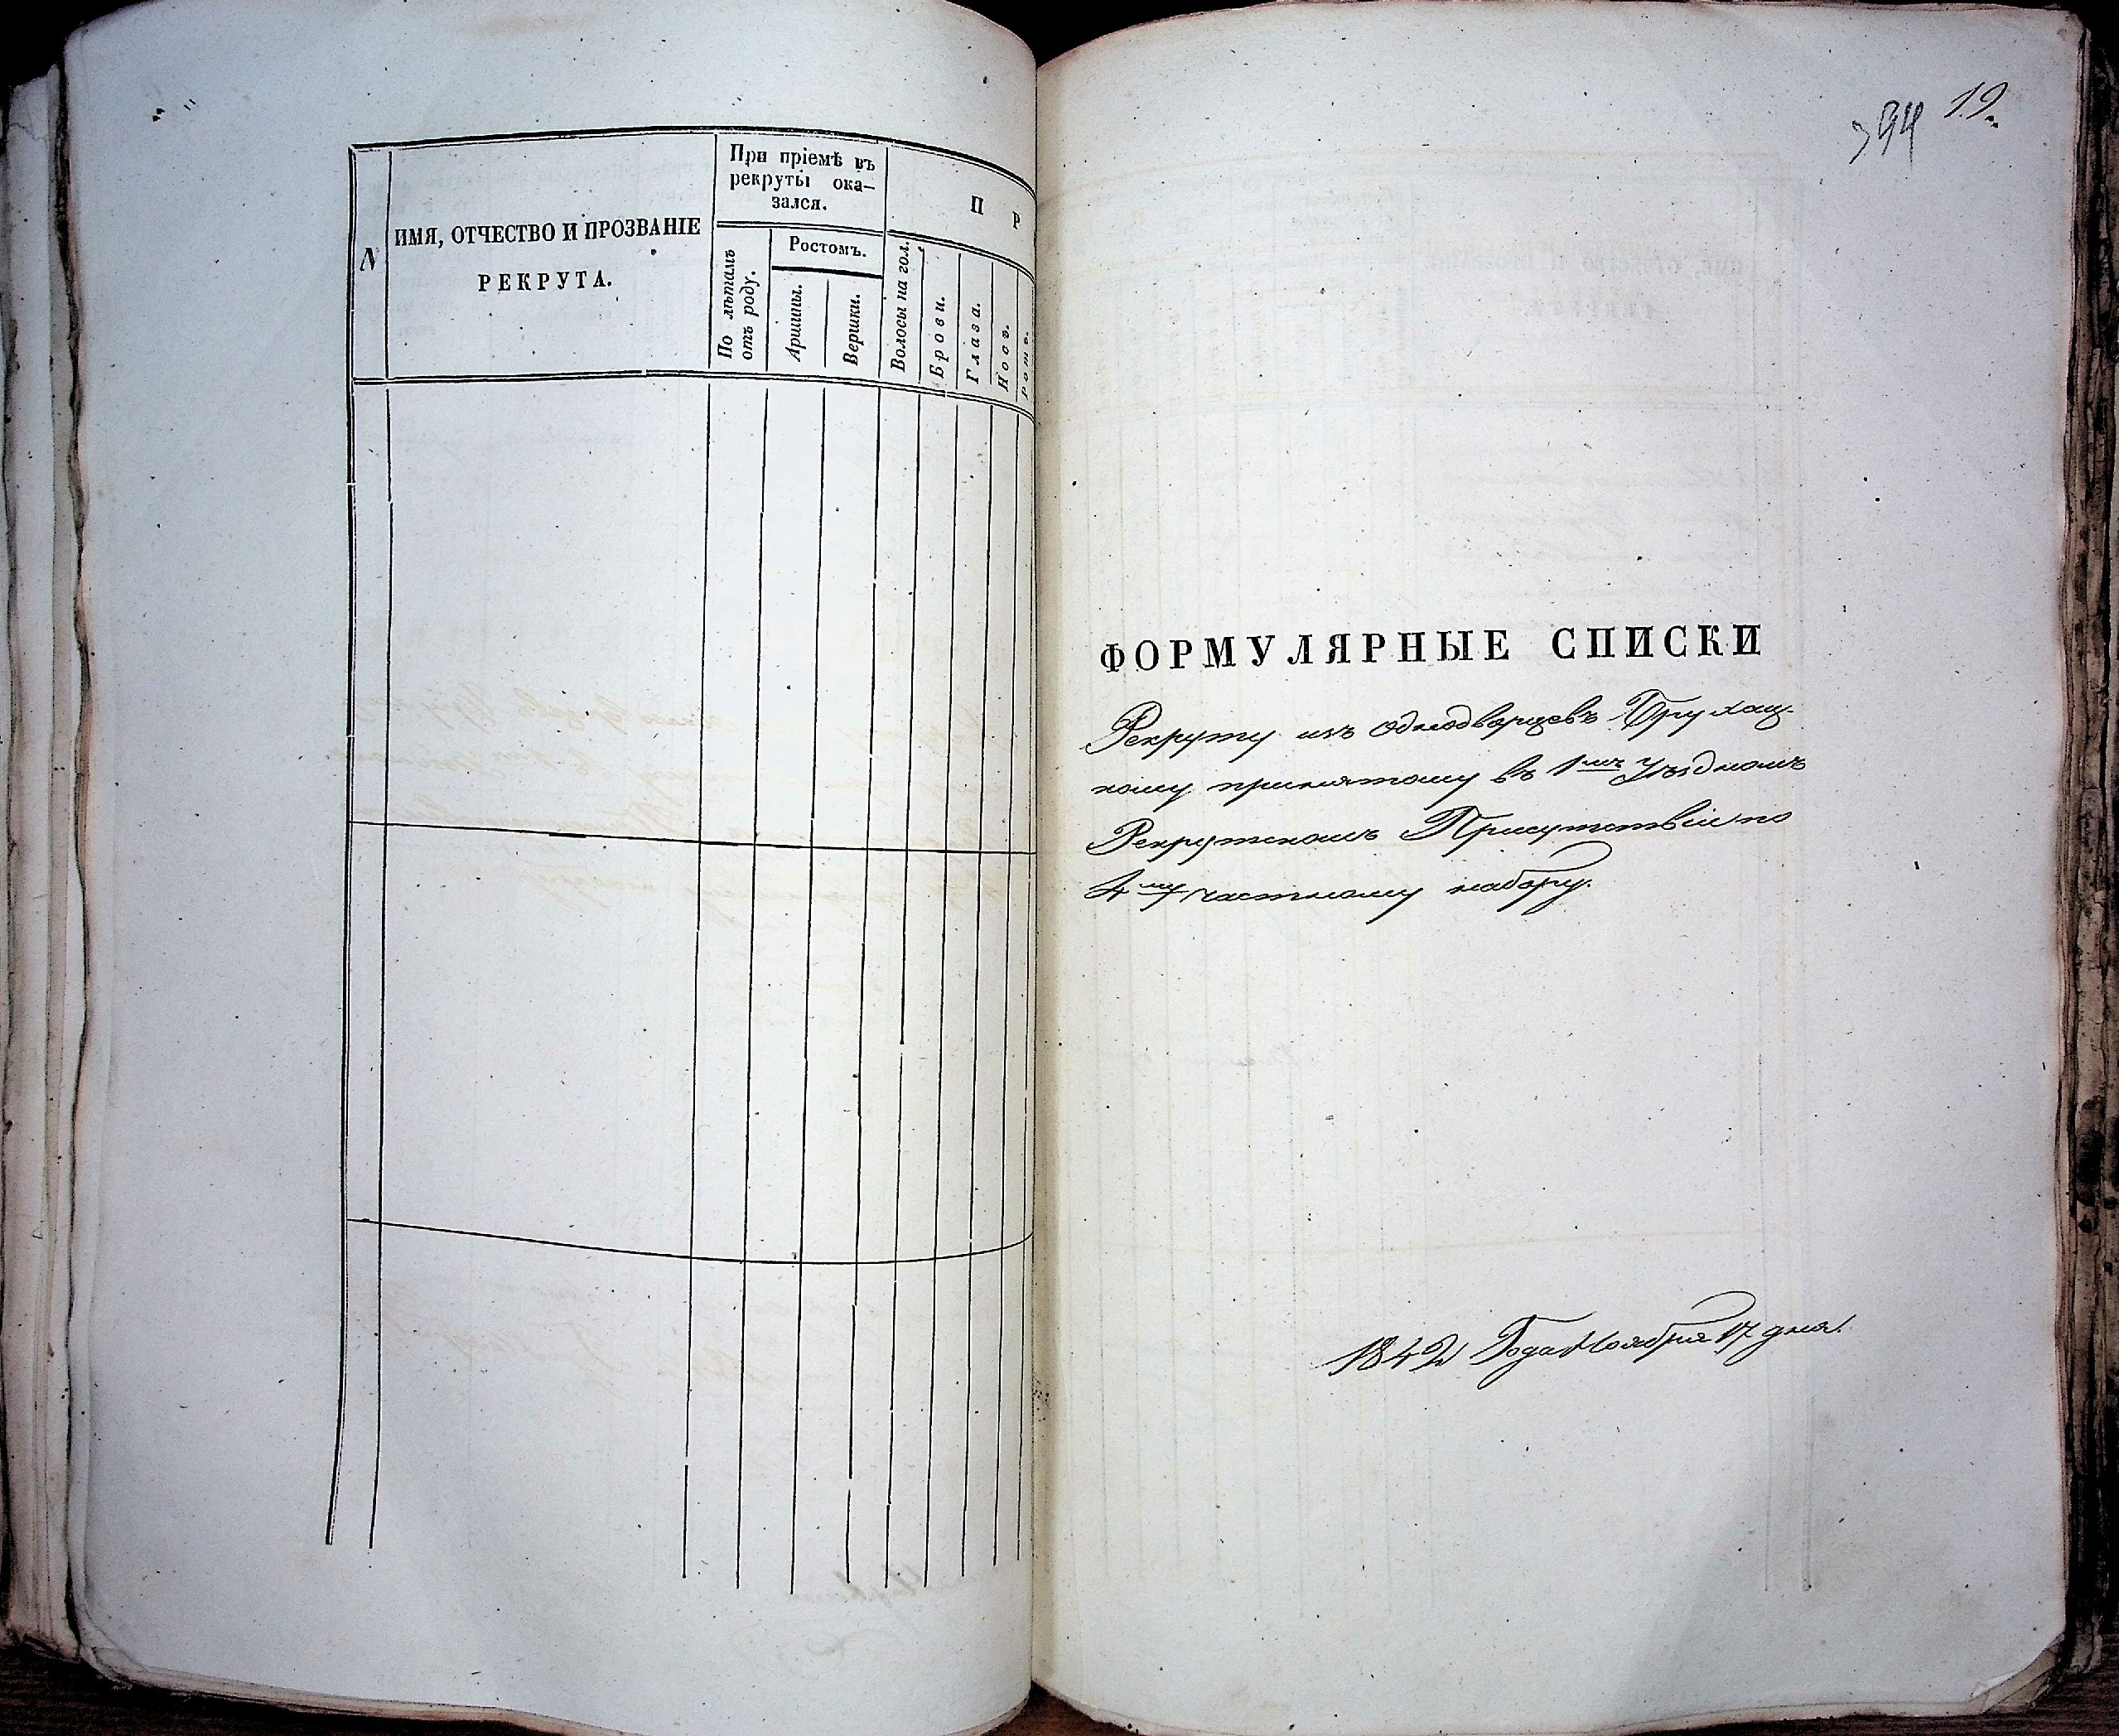 N
ИМЯ, ОТЧЕСТВО И ПРОЗВАНІЕ
РЕКРУТА.
При пріемѣ въ
рекруты ока-
зался.
По лѣтамъ
отъ роду.
Ростомъ.
Аршины.
Вершки.
П Р
Волосы на гол.
Брови.
Глаза.
Носъ.
Ротъ.
394 19
ФОРМУЛЯРНЫЕ СПИСКИ
Рекруту изъ однодворцевъ
кому принятому въ 1мъ Уѣздномъ
Рекрутскомъ Присутствіи по
4му частному набору.
1842 Года Ноября 17 дня.